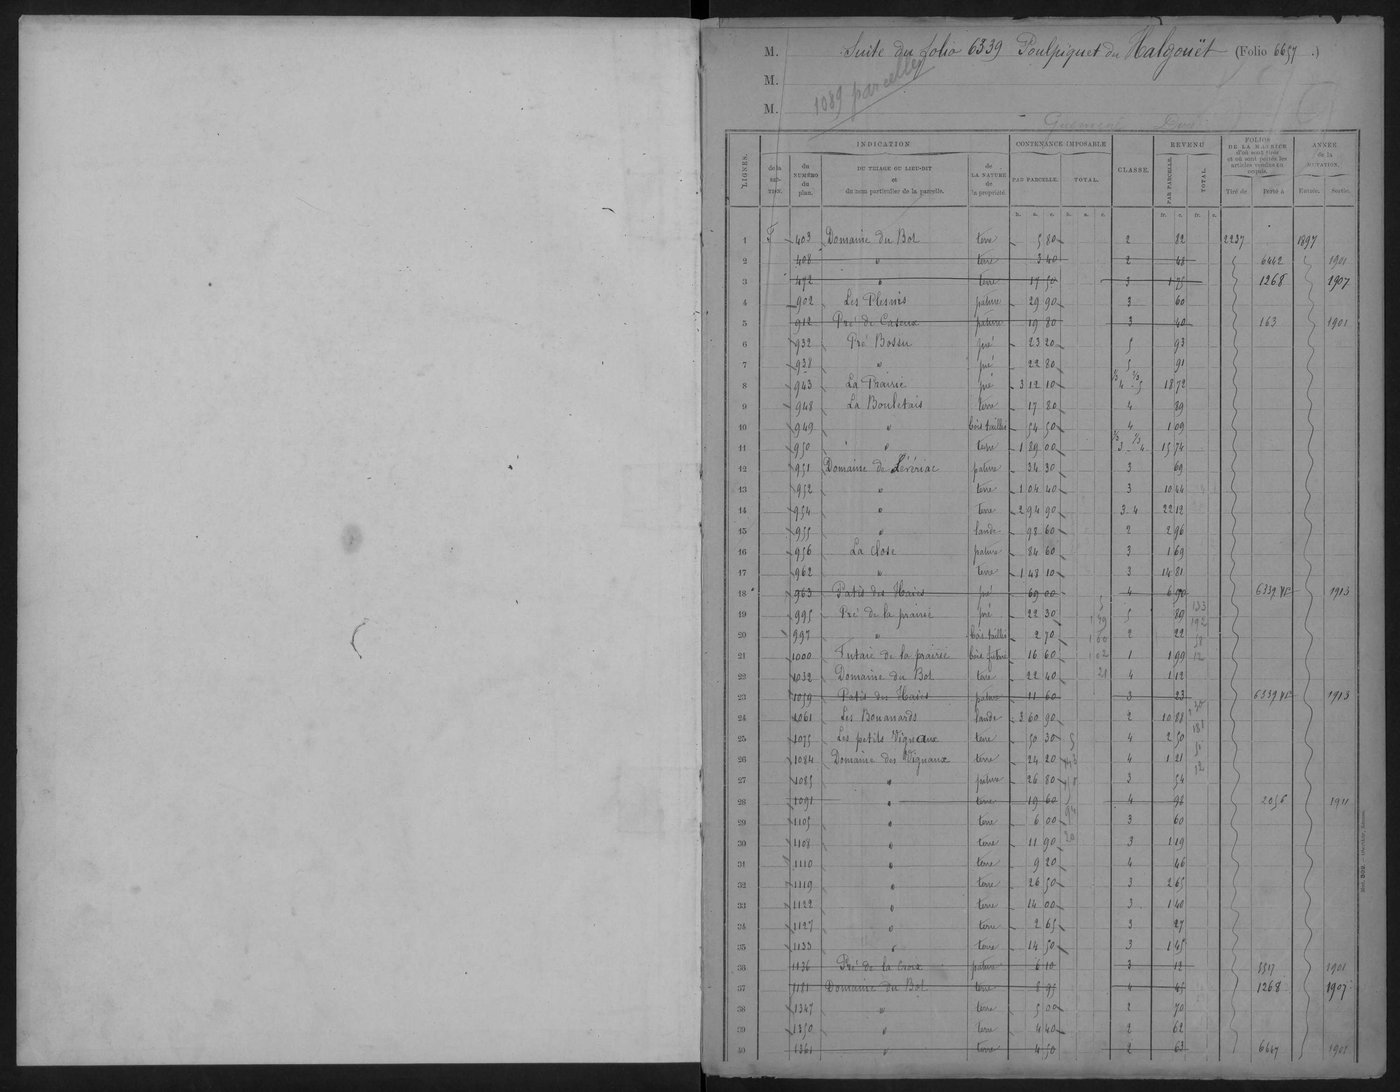 M. Suite du folio 6339 Poulpiquet du Halgouët (Folio 6657.)
M. 1089 parcelles
M.
LIGNES. INDICATION CONTENANCE IMPOSABLE CLASSE. REVENU FOLIOS DE LA MATRICE d'où sont tirés et où sont portés les articles vendus ou acquis. ANNÉE de la MUTATION.
de la section. du NUMÉRO du plan. DU TRIAGE OU LIEU-DIT et du nom particulier de la parcelle. de LA NATURE de la propriété. PAR PARCELLE. TOTAL. PAR PARCELLE. TOTAL. Tiré de Porté à Entrée. Sortie.
h. a. c. h. a. c. fr. c. fr. c.
1 F 403 Domaine du Bot terre 5 80 2 82 2237 1897
2 408 " terre 3 40 2 48 6442 1901
3 472 " terre 17 50 3 1 75 1268 1907
4 902 Les Plesnis pature 29 90 3 60
5 912 Pré de Caseux pature 19 80 3 40 163 1901
6 932 Pré Bossu pré 23 20 5 93
7 938 " pré 22 80 5 91
8 943 La Prairie pré 3 12 10 1/3 4 2/3 5 18 72
9 948 La Bouletais terre 17 80 4 89
10 949 " bois taillis 54 50 4 1 09
11 950 " terre 1 89 00 3 4 15 74
12 951 Domaine de Lérériac pature 34 30 3 69
13 952 " terre 1 04 40 3 10 44
14 954 " terre 2 94 90 3.4 22 12
15 955 " lande 98 60 2 2 96
16 956 La close pature 84 60 3 1 69
17 962 " terre 1 48 10 3 14 81
18 963 Patis des Haies pré 69 00 4 6 90 6339 1913
19 995 Pré de la prairie pré 22 30 5 89
20 997 " bois taillis 2 70 2 22
21 1000 Futaie de la prairie bois futaie 16 60 1 1 99
22 1032 Domaine du Bot terre 22 40 4 1 12
23 1059 Patis des Haies pature 11 60 3 23 6339 1913
24 1061 Les Bouanards lande 3 60 90 2 10 88
25 1075 Les petits Vignaux terre 50 30 4 2 50
26 1084 Domaine des Vignaux terre 24 20 4 1 21
27 1085 " pature 26 80 3 54
28 1091 " terre 19 60 4 98 2056 1911
29 1105 " terre 6 00 3 60
30 1108 " terre 11 90 3 1 19
31 1110 " terre 9 20 4 46
32 1119 " terre 26 50 3 2 65
33 1122 " terre 14 00 3 1 40
34 1127 " terre 2 65 3 27
35 1133 " terre 14 50 3 1 45
36 1136 Pré de la Croix pature 6 10 3 12 5517 1901
37 1181 Domaine du Bot terre 8 95 4 45 1268 1907
38 1347 " terre 5 00 2 70
39 1350 " terre 4 40 2 62
40 1361 " terre 4 50 2 63 6647 1901